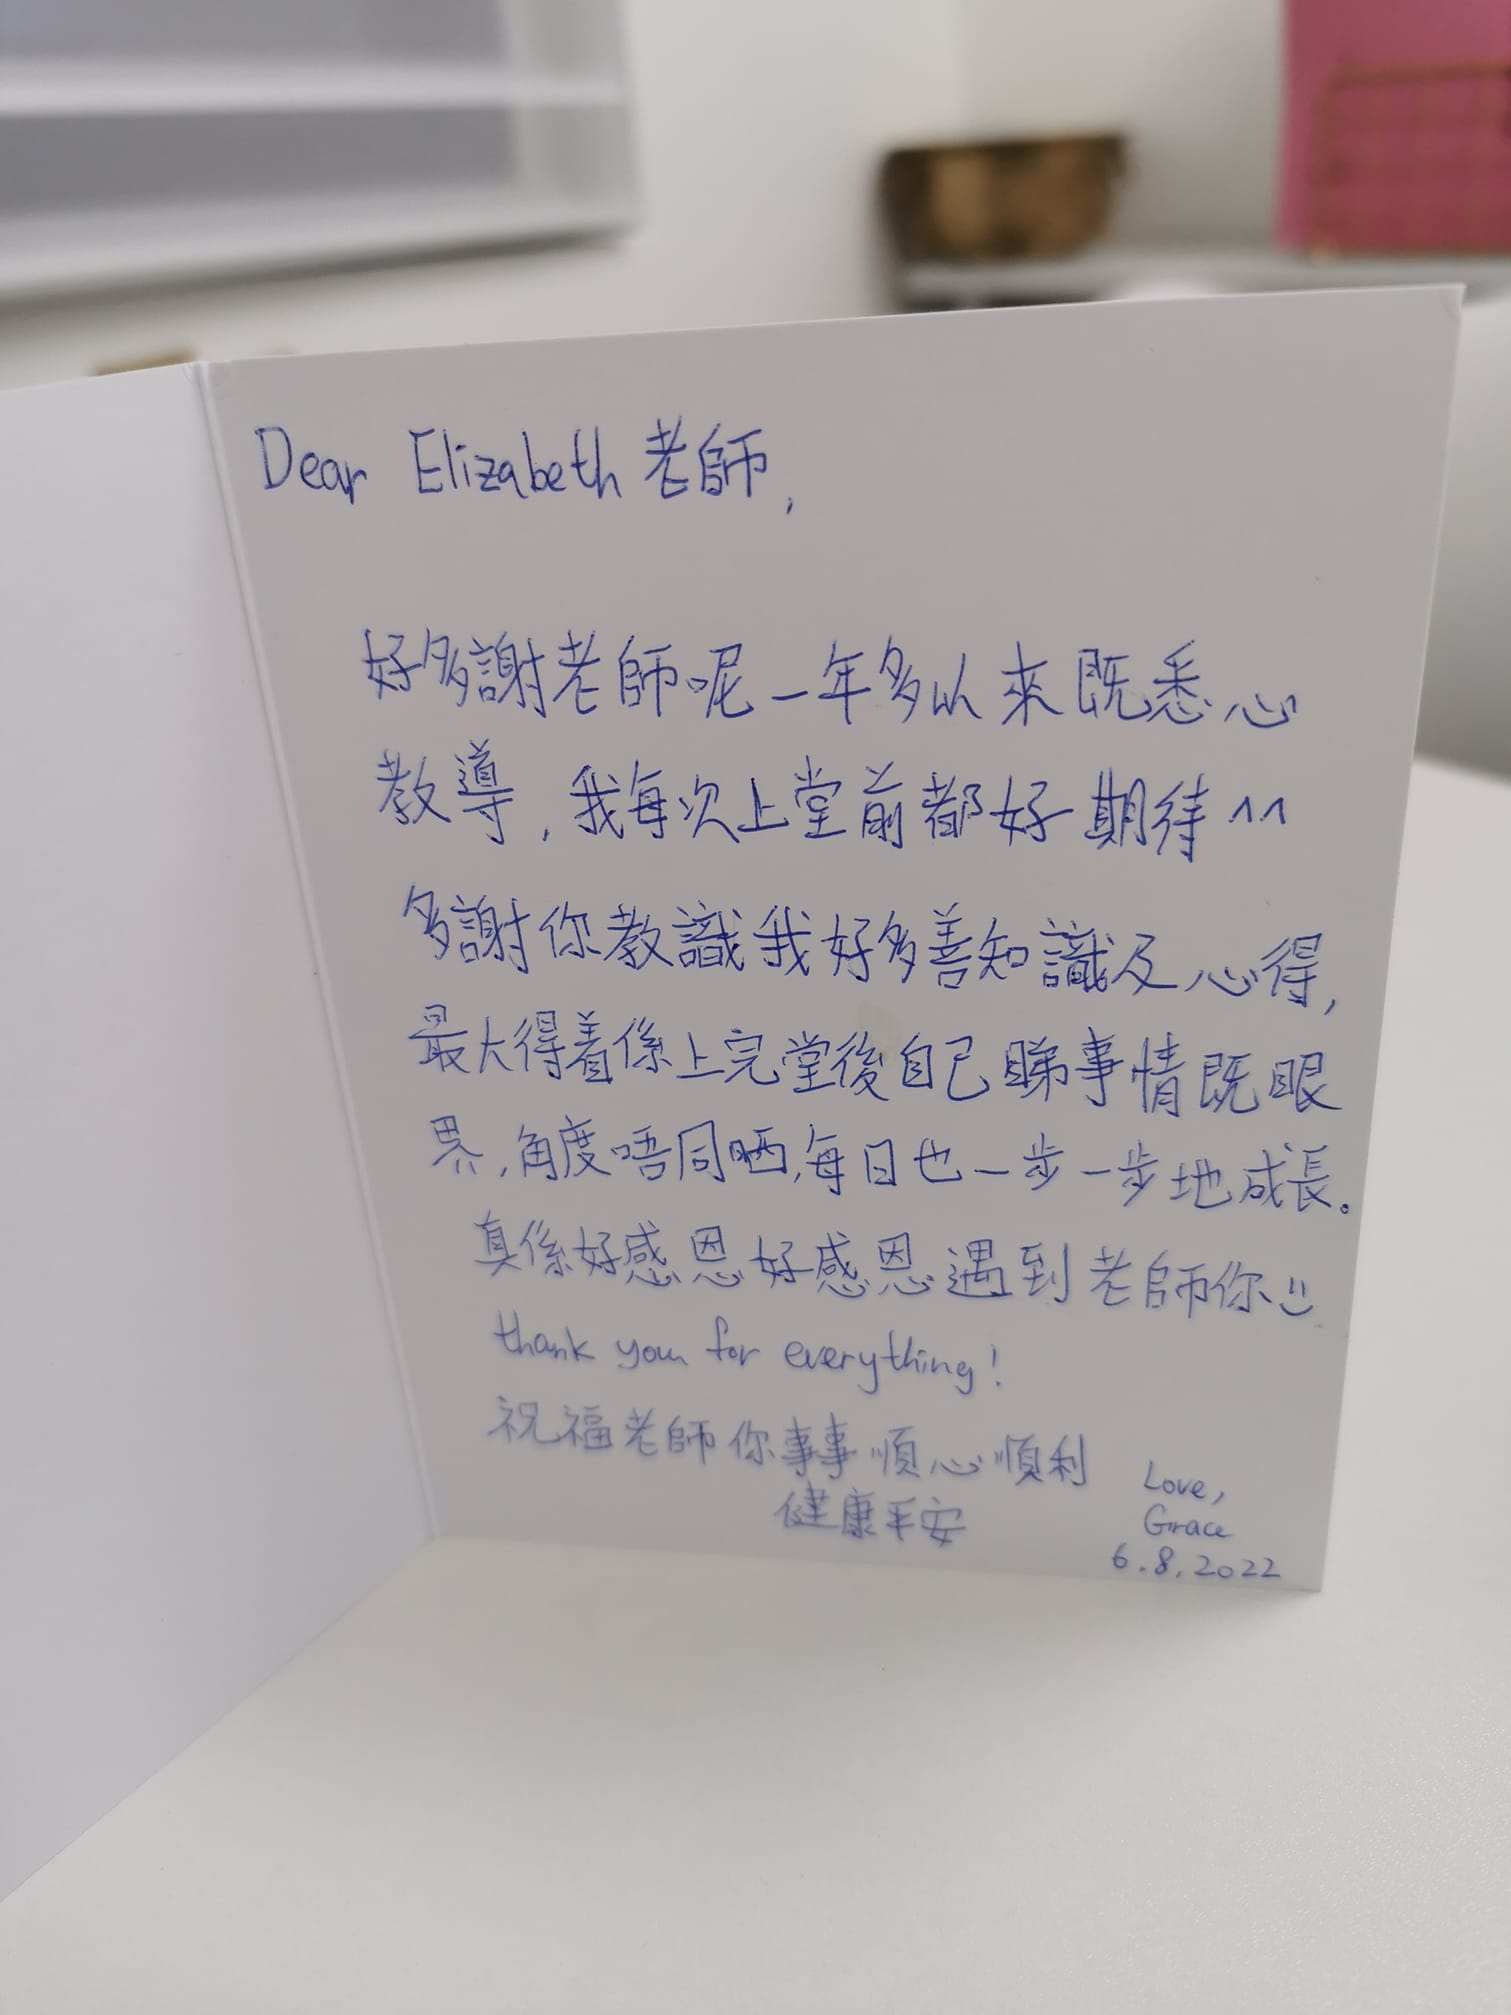 Dear Elizabeth 老師,
好多謝老師呢一年多以來既悉心
教導,我每次上堂前都好期待^^
多謝你教識我好多善知識及心得,
最大得着係上完堂後自己睇事情既眼
界,角度唔同晒,每日也一步一步地成長。
真係好感恩好感恩遇到老師你
thank you for everything!
祝福老師你事事順心順利
健康平安
Love,
Grace
6.8.2022